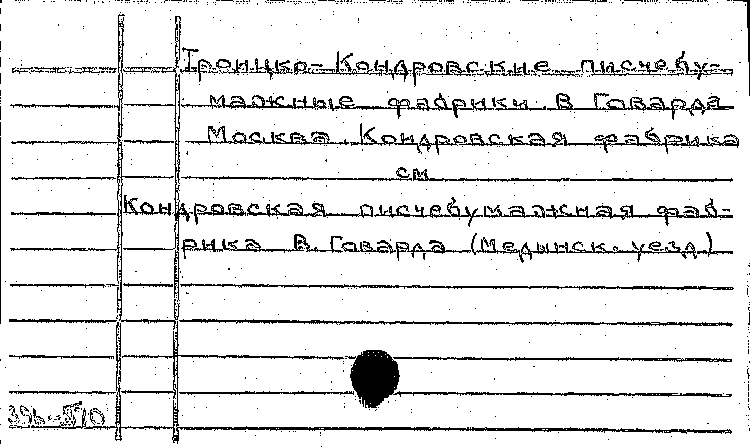 Троицко-Кондровские писчебу-
мажные фабрики В Говарда
Москва. Кондровская фабрика
см
Кондровская писчебумажная фаб-
рика В. Говарда (Медынск. уезд)